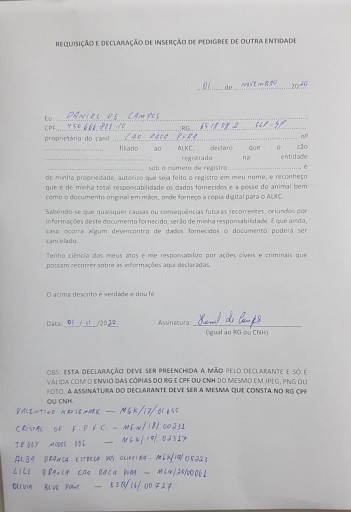 REQUISIÇÃO E DECLARAÇÃO DE INSERÇÃO DE PEDIGREE DE OUTRA ENTIDADE
01 de NOVEMBRO 2020
Eu DANIEL DE CAMPOS
CPF RG SSP-SP
proprietário do canil CAO RACA PURA nº
filiado ao ALKC, declaro que o cão
registrado na entidade
sob o número de registro é
de minha propriedade, autorizo que seja feito o registro em meu nome, e reconheço
que é de minha total responsabilidade os dados fornecidos e a posse do animal bem
como o documento original em mãos, onde forneço a cópia digital para o ALKC.
Sabendo-se que quaisquer causas ou consequências futuras recorrentes, oriundos por
informações deste documento fornecido, serão de minha responsabilidade. E que ainda,
caso ocorra algum desencontro de dados fornecidos o documento poderá ser
cancelado.
Tenho ciência dos meus atos e me responsabilizo por ações cíveis e criminais que
possam recorrer sobre as informações aqui declaradas.
O acima descrito é verdade e dou fé
Data: 01 / 11 /2020 Assinatura: Daniel de Campos
(Igual ao RG ou CNH)
OBS: ESTA DECLARAÇÃO DEVE SER PREENCHIDA A MÃO PELO DECLARANTE E SÓ É
VÁLIDA COM O ENVIO DAS CÓPIAS DO RG E CPF OU CNH DO MESMO EM JPEG, PNG OU
FOTO. A ASSINATURA DO DECLARANTE DEVE SER A MESMA QUE CONSTA NO RG CPF
OU CNH.
VALENTINO — MGK/17/01655
CRISTAL OF F.P.V.C. — MEN/18/00231
TEDDY DOG — MGK/19/02317
ALBA BRANCA ESTRELA DOS OLIVEIRA - MGK/19/05223
LILI BRANCA CAO RACA PURA — MGN/20/00061
OLIVIA BLUE POINT — ESB/16/00727